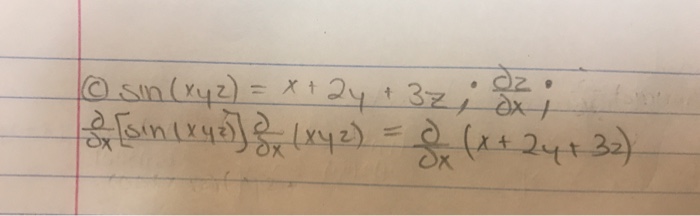 ⓒ sin(xyz) = x + 2y + 3z ; ∂z/∂x ;
∂/∂x [sin(xyz)] ∂/∂x (xyz) = ∂/∂x (x + 2y + 3z)